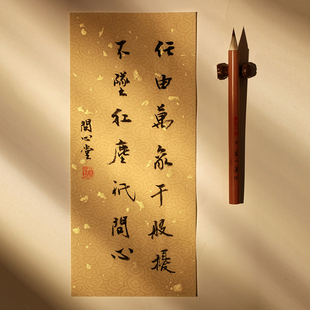 任由萬象千般擾
不墜紅塵祇問心
問心堂